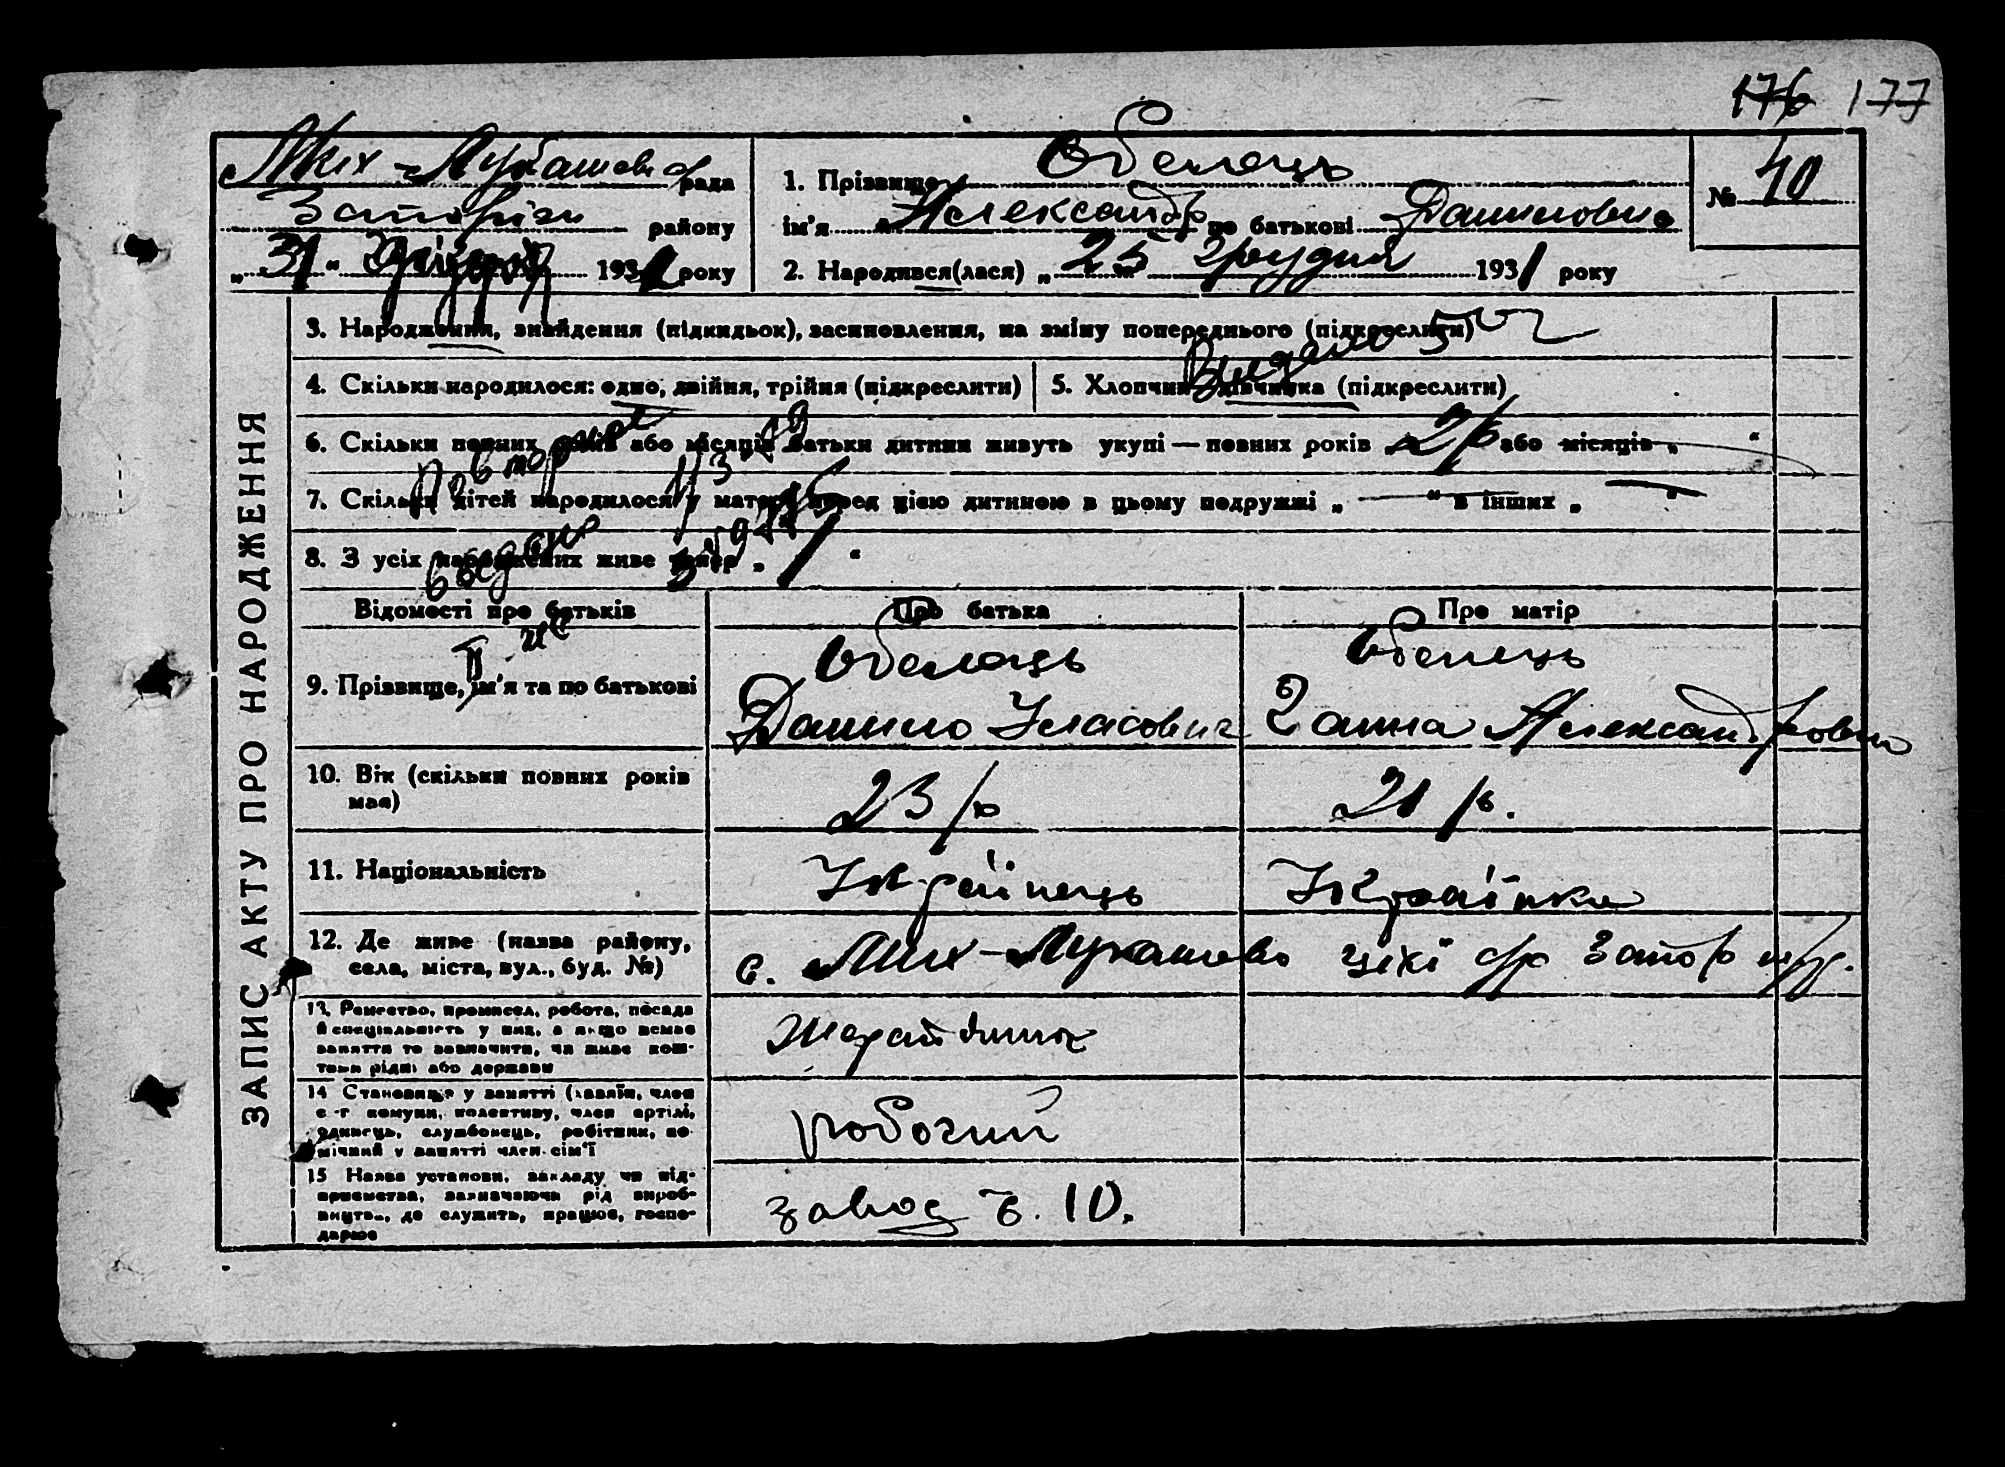 176 177
Мих-Лукашевск рада
району
„ 31 “ 193 року
1. Прізвище Обелець
ім'я Александр по батькові Данилович
№ 40
2. Народився(лася) „ 25 “ Грудня 1931 року
3. Народження, знайдення (підкидьок), засиновлення, на зміну попереднього (підкреслити)
4. Скільки народилося: одно, двійня, трійня (підкреслити)
5. Хлопчик дівчинка (підкреслити)
6. Скільки повних років або місяців батьки дитини живуть укупі — повних років 2 р або місяців „ “
7. Скільки дітей народилося у матері перед цією дитиною в цьому подружжі „ — “ в інших „ — “
8. З усіх народжених живе тепер „ 1 “
Повторне
Видано
ЗАПИС АКТУ ПРО НАРОДЖЕННЯ
Відомості про батьків
Про батька
Про матір
9. Прізвище, ім'я та по батькові
Обелець
Данило Уласович
Обелець
Ганна Александровна
10. Вік (скільки повних років має)
23 р
21 р.
11. Національність
Українець
Українка
12. Де живе (назва району, села, міста, вул., буд. №)
с. Мих-Лукашево
13. Ремество, промисел, робота, посада й спеціальність у них, а якщо немає заняття то зазначити, чи живе коштами рідні або держави
14 Становище у занятті (хазяїн, член с-г комуни, колективу, член артілі, одинець, службовець, робітник, помічний у занятті член сім'ї
робочий
15 Назва установи, закладу чи підприємства, зазначаючи рід виробництва, де служить, працює, господарює
завод ч. 10.